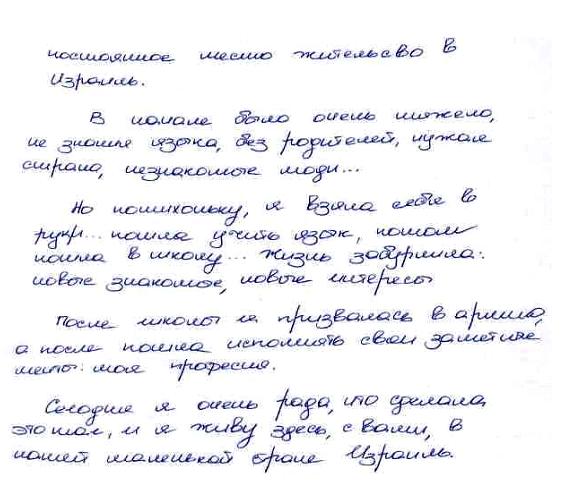 постоянное место жительсво в
Израиль.
В начале было очень тяжело,
не знание языка, без родителей, чужая
страна, незнакомые люди...
Но потихоньку, я взяла себя в
руки... пошла учить язык, потом
пошла в школу... жизнь забурлила:
новые знакомые, новые интересы
После школы я призвалась в армию,
а после пошла исполнять свои заметные
мечты: моя професия.
Сегодня я очень рада, что сделала
это так, и я живу здесь, с вами, в
нашей маленькой стране Израиль.